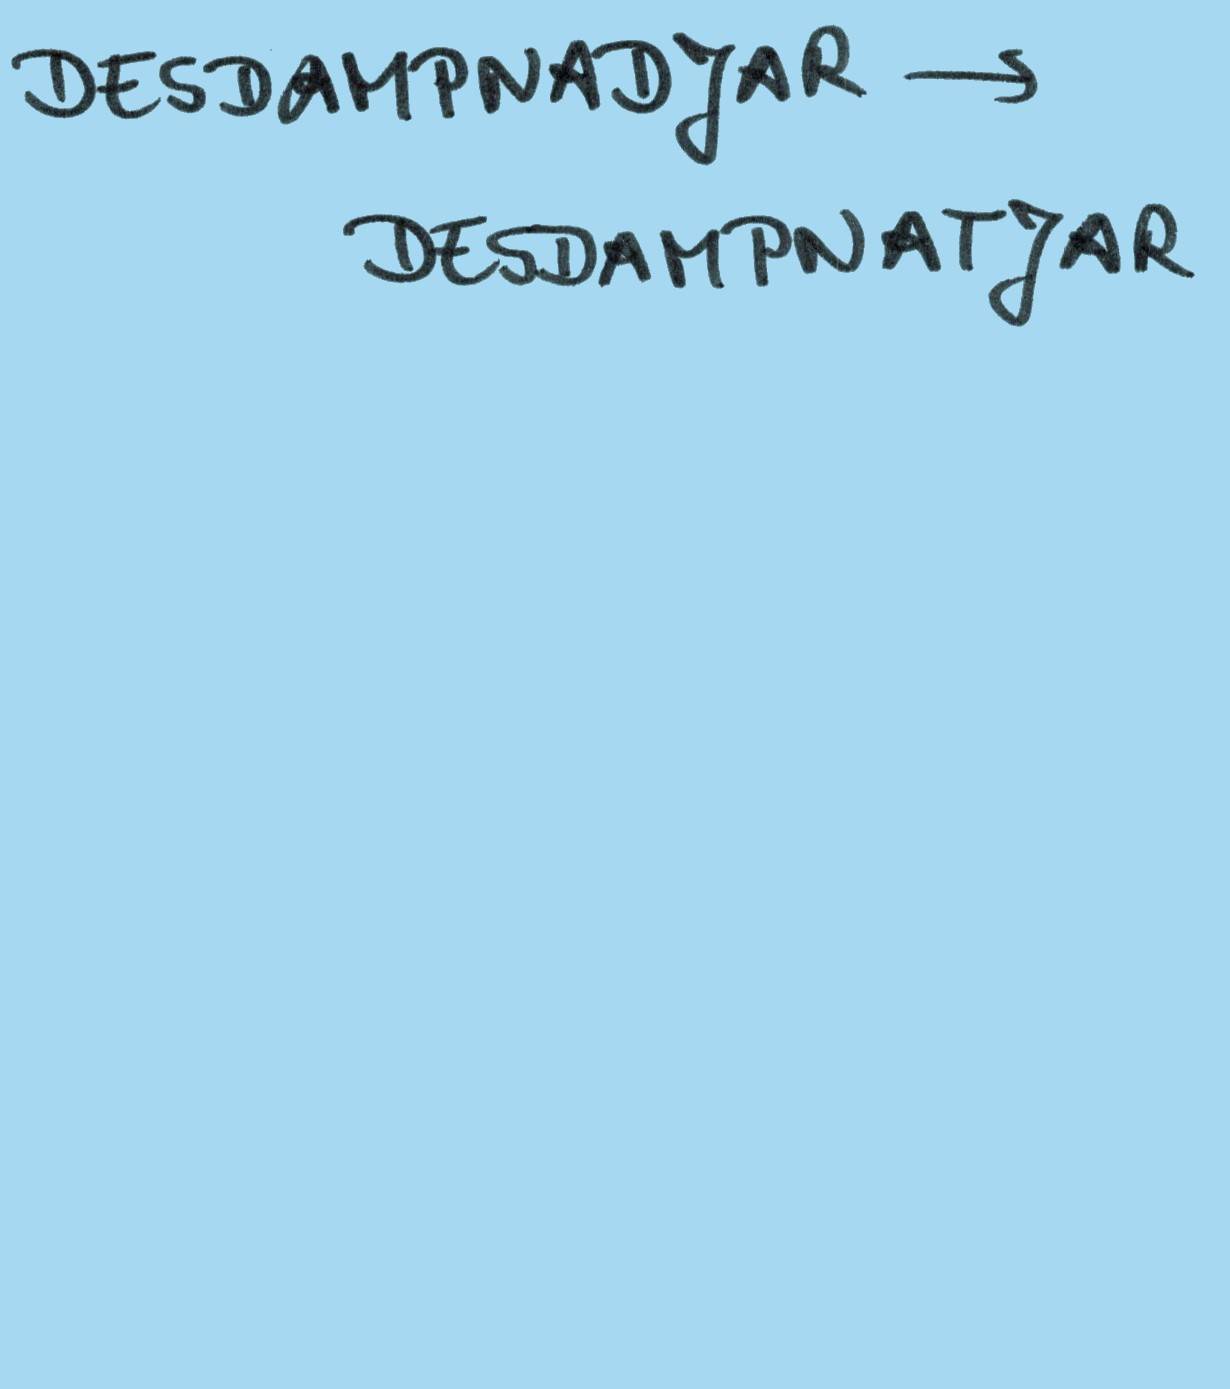 DESDAMPNADJAR →
DESDAMPNATJAR